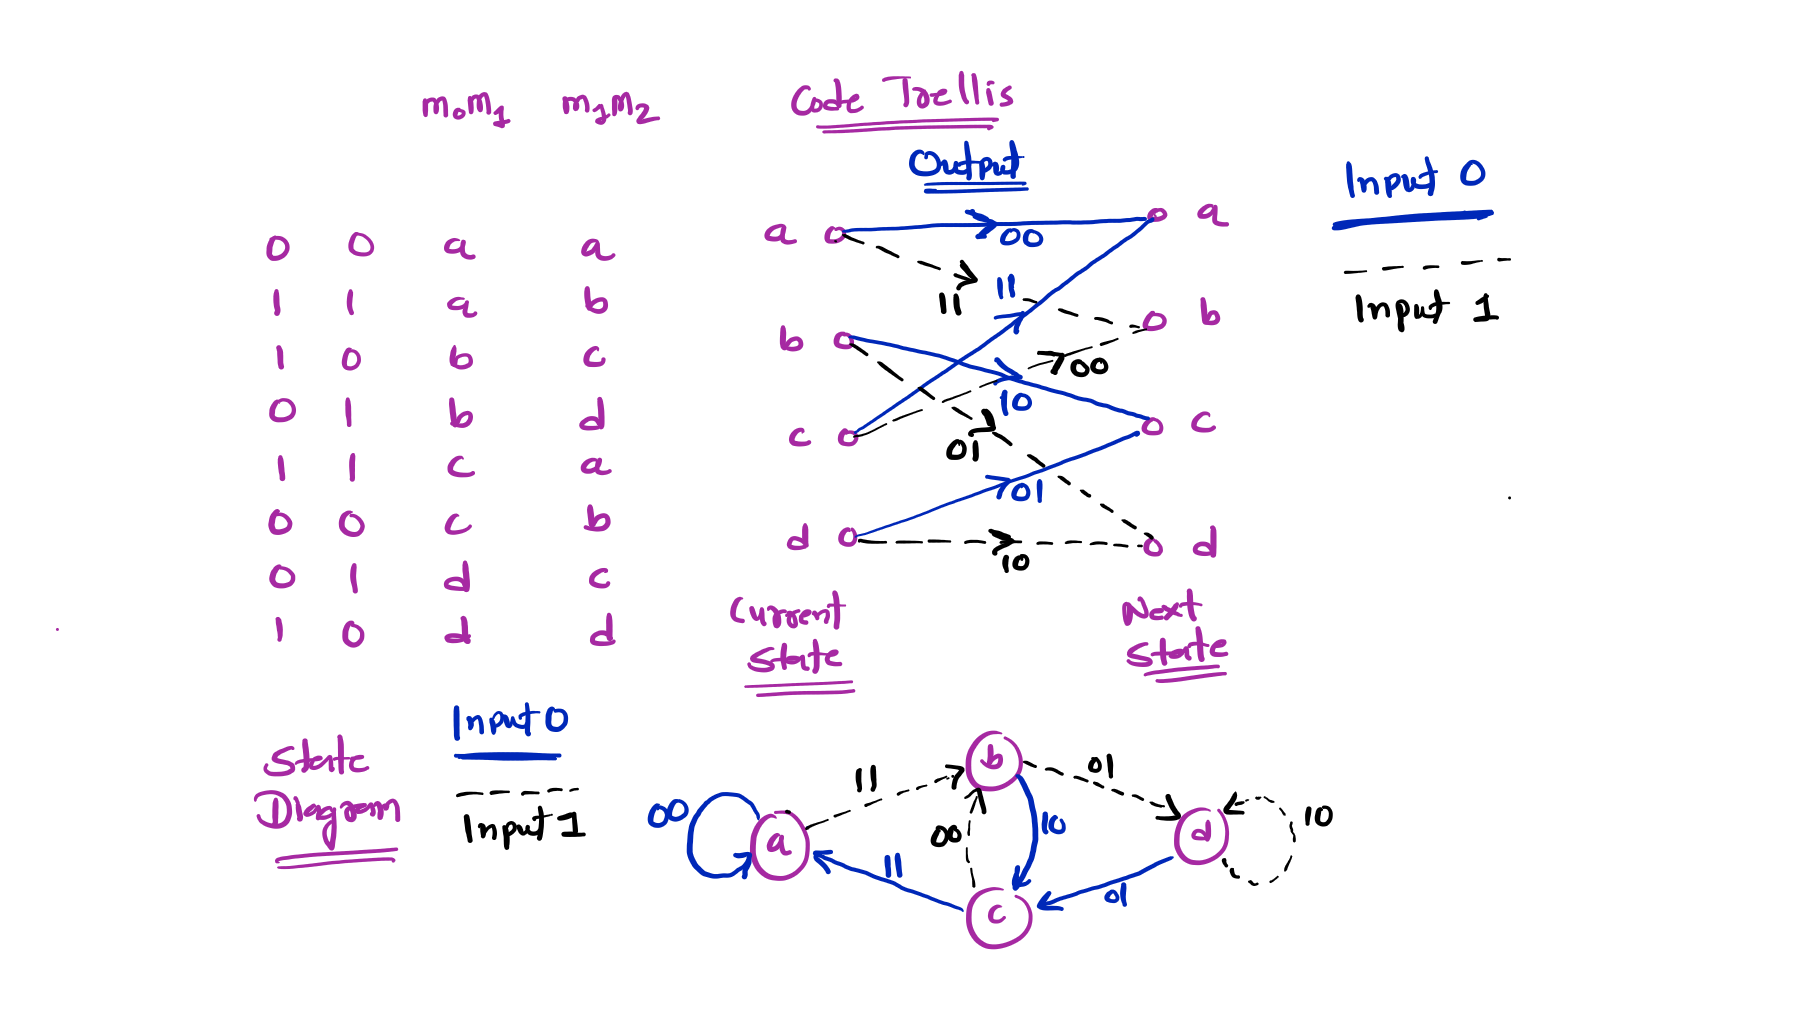 m₀m₁ m₁m₂
0 0 a a
1 1 a b
1 0 b c
0 1 b d
1 1 c a
0 0 c b
0 1 d c
1 0 d d
Code Trellis
Output
a 00 a
11 11
b 00 b
10
c 01 c
01
d 10 d
Current State
Next State
Input 0
Input 1
State Diagram
Input 0
Input 1
00 a 11 b 01 d 10
00 10
11 c 01